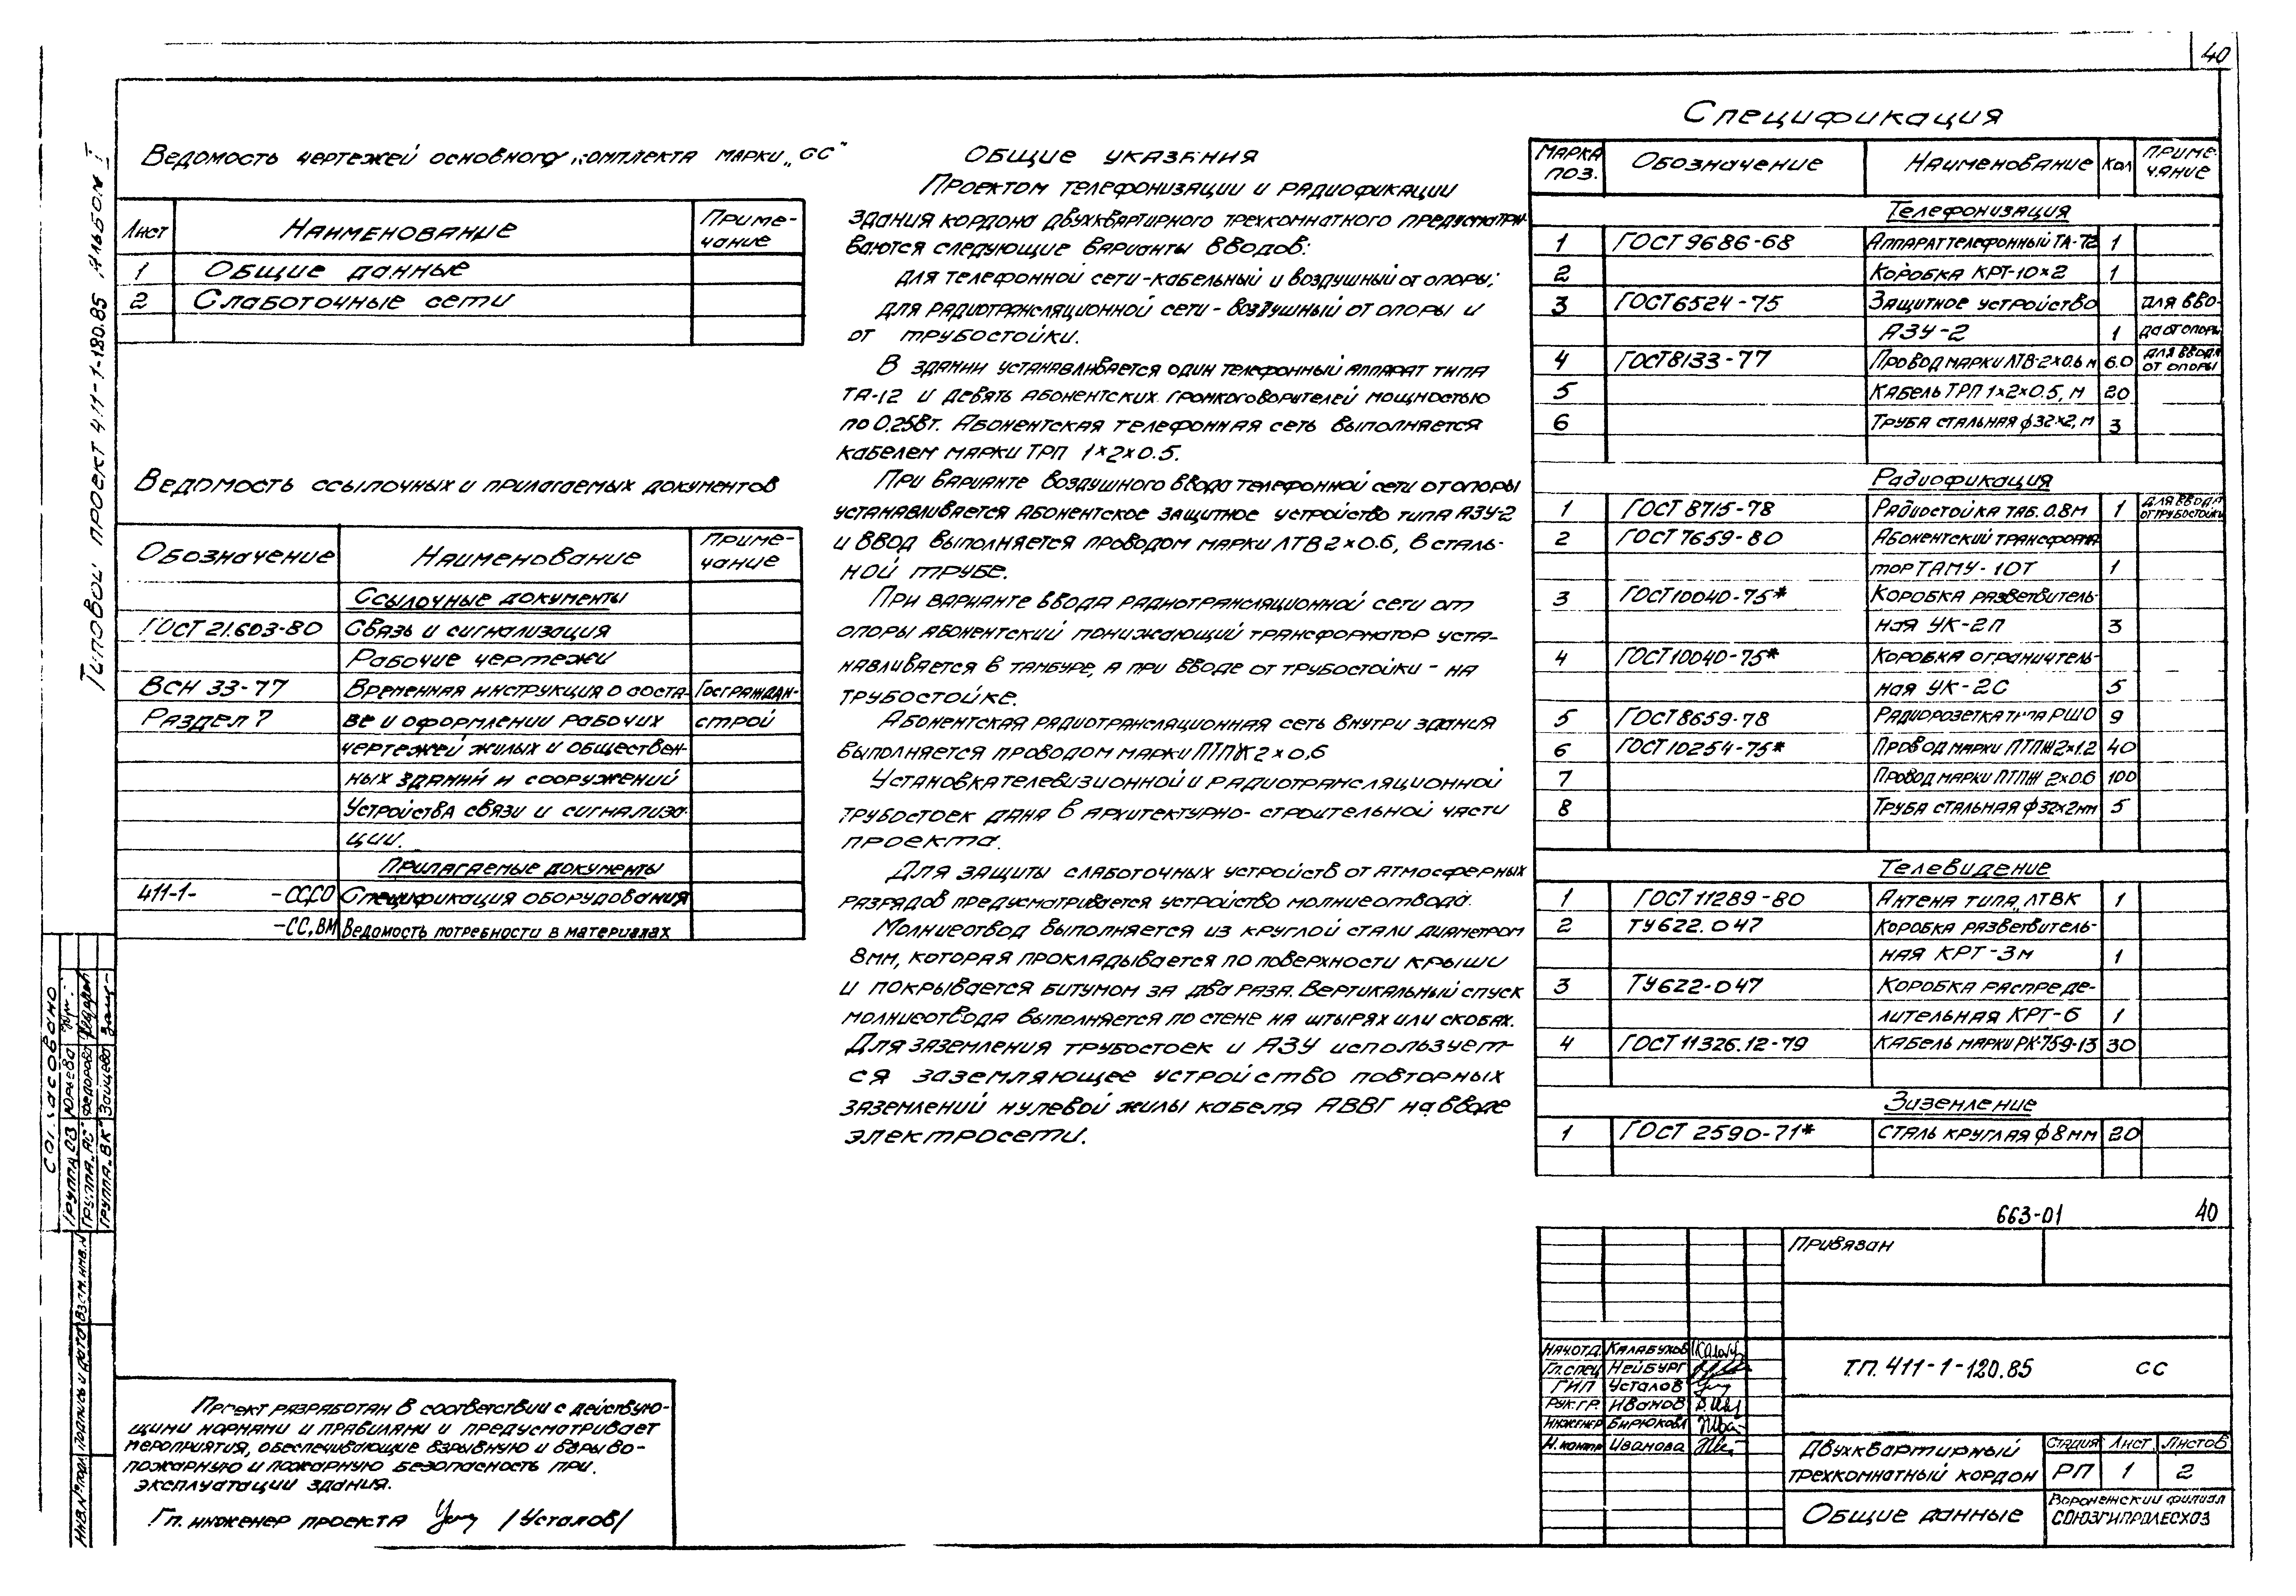 40
Типовой проект 411-1-120.85 Альбом I
Ведомость чертежей основного комплекта марки „СС"
Лист Наименование Примечание
1 Общие данные
2 Слаботочные сети
Ведомость ссылочных и прилагаемых документов
Обозначение Наименование Примечание
Ссылочные документы
ГОСТ 21.603-80 Связь и сигнализация
Рабочие чертежи
ВСН 33-77 Временная инструкция о соста- Госграждан-
Раздел 7 ве и оформлении рабочих строй
чертежей жилых и обществен-
ных зданий и сооружений
Устройства связи и сигнализа-
ции.
Прилагаемые документы
411-1- -СС,СО Спецификация оборудования
-СС,ВМ Ведомость потребности в материалах
Общие указания
Проектом телефонизации и радиофикации
здания кордона двухквартирного трехкомнатного предусматри-
ваются следующие варианты вводов:
для телефонной сети-кабельный и воздушный от опоры;
для радиотрансляционной сети-воздушный от опоры и
от трубостойки.
В здании устанавливается один телефонный аппарат типа
ТА-12 и девять абонентских громкоговорителей мощностью
по 0,25Вт. Абонентская телефонная сеть выполняется
кабелем марки ТРП 1×2×0.5.
При варианте воздушного ввода телефонной сети от опоры
устанавливается абонентское защитное устройство типа АЗУ-2
и ввод выполняется проводом марки ЛТВ 2×0.6, в сталь-
ной трубе.
При варианте ввода радиотрансляционной сети от
опоры абонентский понижающий трансформатор уста-
навливается в тамбуре, а при вводе от трубостойки - на
трубостойке.
Абонентская радиотрансляционная сеть внутри здания
выполняется проводом марки ПТПЖ 2×0,6
Установка телевизионной и радиотрансляционной
трубостоек дана в архитектурно-строительной части
проекта.
Для защиты слаботочных устройств от атмосферных
разрядов предусматривается устройство молниеотвода.
Молниеотвод выполняется из круглой стали диаметром
8мм, которая прокладывается по поверхности крыши
и покрывается битумом за два раза. Вертикальный спуск
молниеотвода выполняется по стене на штырях или скобах.
Для заземления трубостоек и АЗУ использует-
ся заземляющее устройство повторных
заземлений нулевой жилы кабеля АВВГ на вводе
электросети.
Спецификация
Марка поз. Обозначение Наименование Кол Примечание
Телефонизация
1 ГОСТ 9686-68 Аппарат телефонный ТА-72 1
2 Коробка КРТ-10×2 1
3 ГОСТ6524-75 Защитное устройство для вво-
АЗУ-2 1 да от опоры
4 ГОСТ8133-77 Провод марки ЛТВ-2×0.6 м 6.0 для ввода от опоры
5 Кабель ТРП 1×2×0.5, м 20
6 Труба стальная ф32×2, м 3
Радиофикация
1 ГОСТ 8715-78 Радиостойка таб. 0.8м 1 для ввода от трубостойки
2 ГОСТ 7659-80 Абонентский трансформа
тор ТАМУ-10Т 1
3 ГОСТ10040-75* Коробка разветвитель-
ная УК-2П 3
4 ГОСТ10040-75* Коробка ограничтель-
ная УК-2С 5
5 ГОСТ8659-78 Радиорозетка типа РШО 9
6 ГОСТ10254-75* Провод марки ПТПЖ 2×1.2 40
7 Провод марки ПТПЖ 2×0.6 100
8 Труба стальная ф32×2мм 5
Телевидение
1 ГОСТ 11289-80 Антена типа „ЛТВК 1
2 ТУ622.047 Коробка разветвитель-
ная КРТ-3м 1
3 ТУ622-047 Коробка распреде-
лительная КРТ-6 1
4 ГОСТ 11326.12-79 Кабель марки РК-759-13 30
Зиземление
1 ГОСТ 2590-71* Сталь круглая ф8мм 20
663-01 40
Привязан
Нач.отд. Калабухов
Гл.спец Нейбург
ГИП Усталов
Рук.гр. Иванов
Инженер Бирюкова
Н.контр Иванова
Т.П. 411-1-120.85 СС
Двухквартирный
трехкомнатный кордон
Стадия Лист. Листов
РП 1 2
Общие данные
Воронежский филиал
СОЮЗГИПРОЛЕСХОЗ
Проект разработан в соответствии с действую-
щими нормами и правилами и предусматривает
мероприятия, обеспечивающие взрывную и взрыво-
пожарную и пожарную безопасность при.
эксплуатации здания.
Гл. инженер проекта /Усталов/
Согласовано
Группа ОВ Юрьева
Группа „АС" Федорова
Группа „ВК" Зайцева
Инв.№подл. Подпись и дата Взам.инв.№